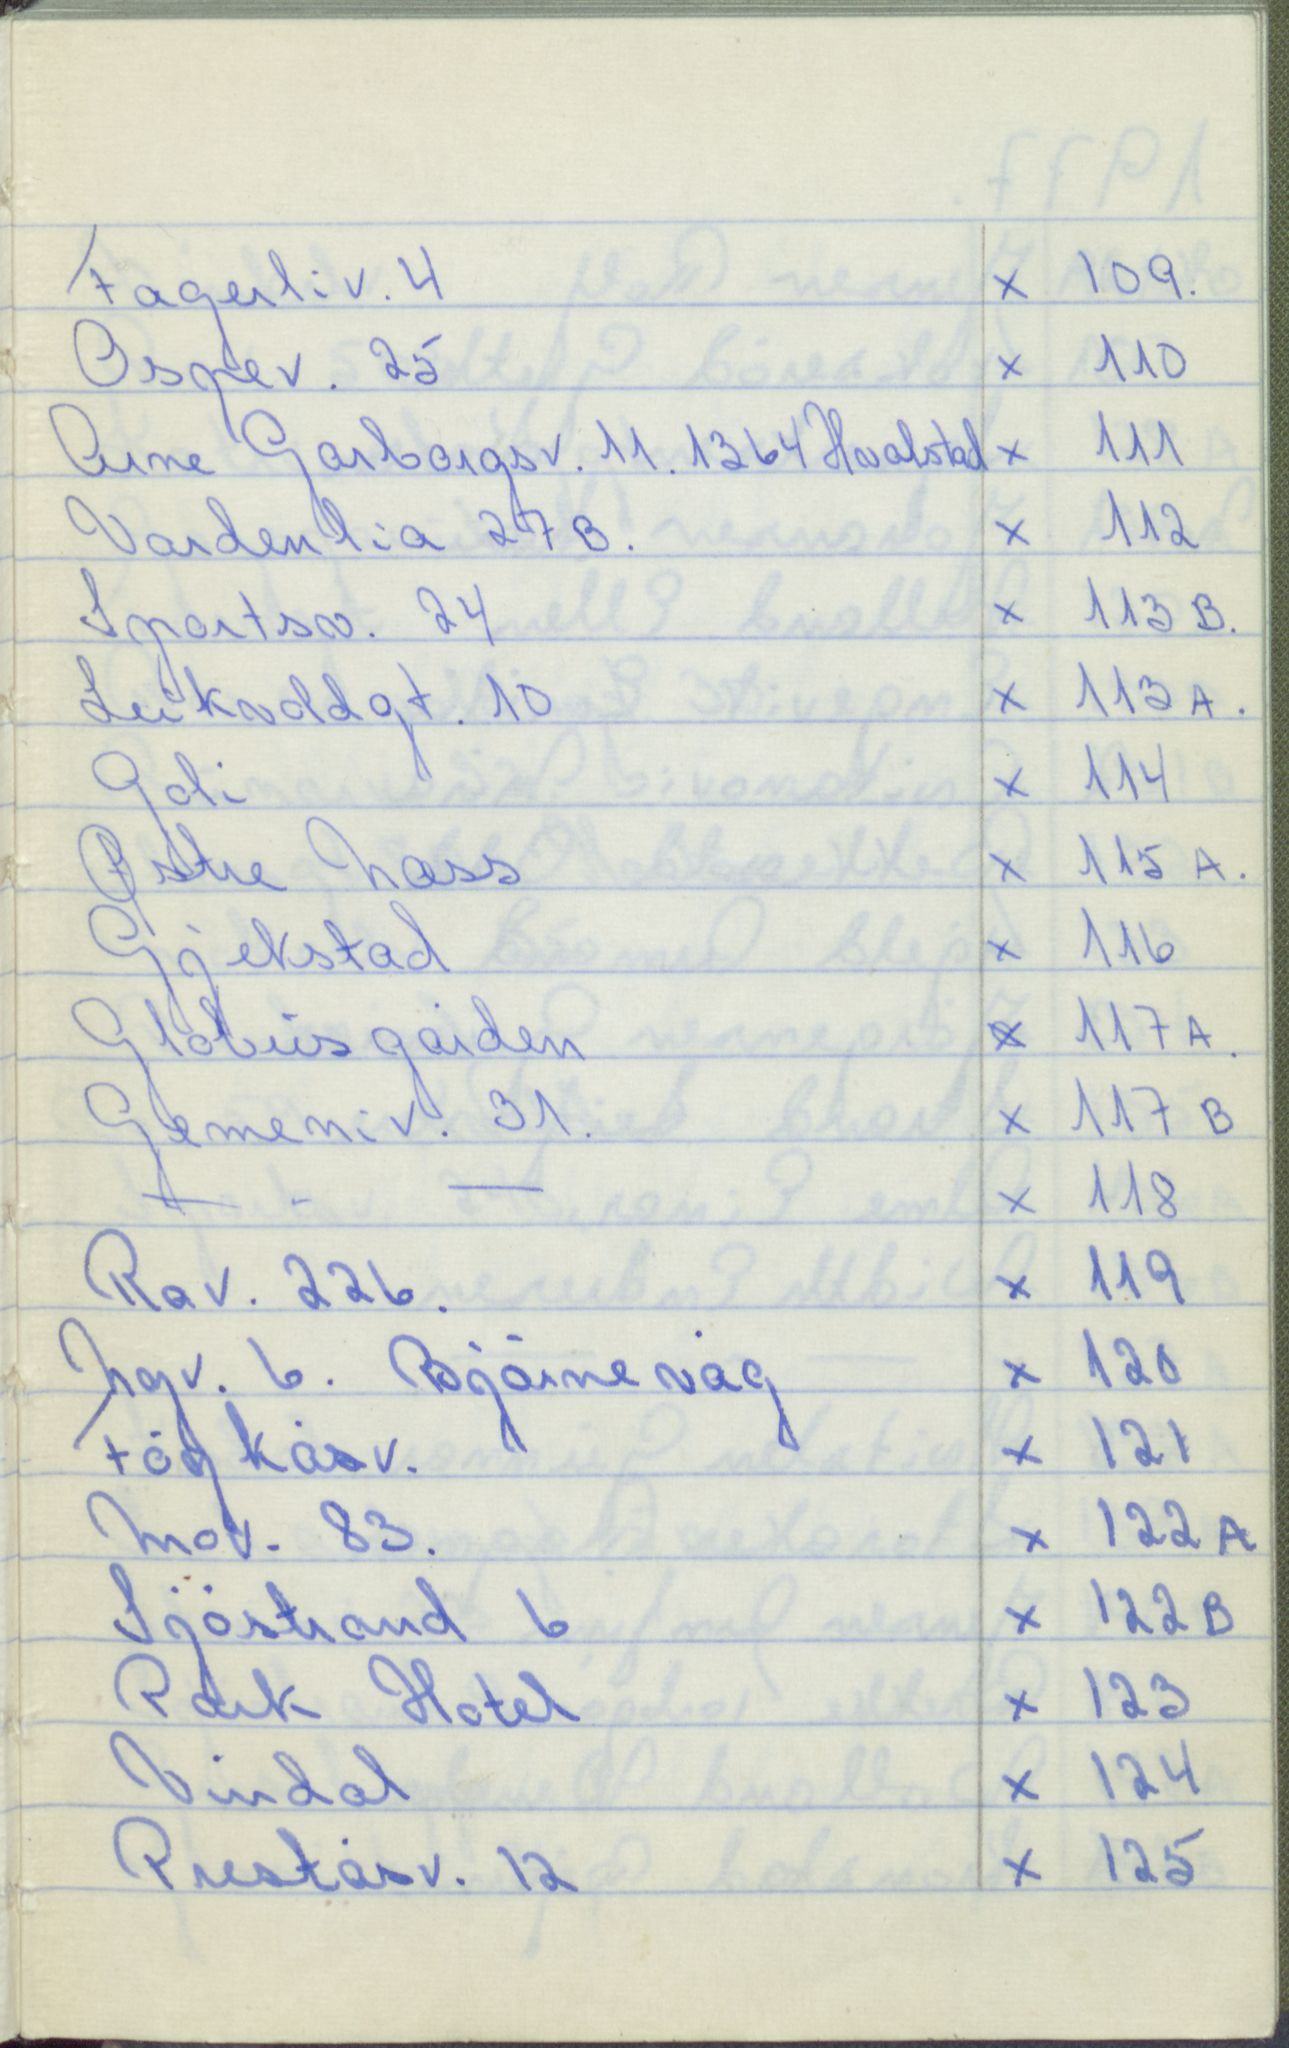 Fagerliv. 4 x 109.
Ospev. 25 x 110
Arne Garborgsv. 11. 1364 Hvalstad x 111
Vardenlia 27B. x 112
Sportsv. 24 x 113 B.
Leikvollgt. 10 x 113 A.
Goli x 114
Østre Moss x 115 A.
Gjekstad x 116
Globusgården x 117 A.
Gemeniv. 31. x 117 B
— - — x 118
Rav. 226. x 119
Hgv. 6. Bjørnevåg x 120
Fögkåsv. x 121
Mov. 83. x 122 A
Sjöstrand 6 x 122 B
Park Hotel x 123
Vindal x 124
Preståsv. 12 x 125